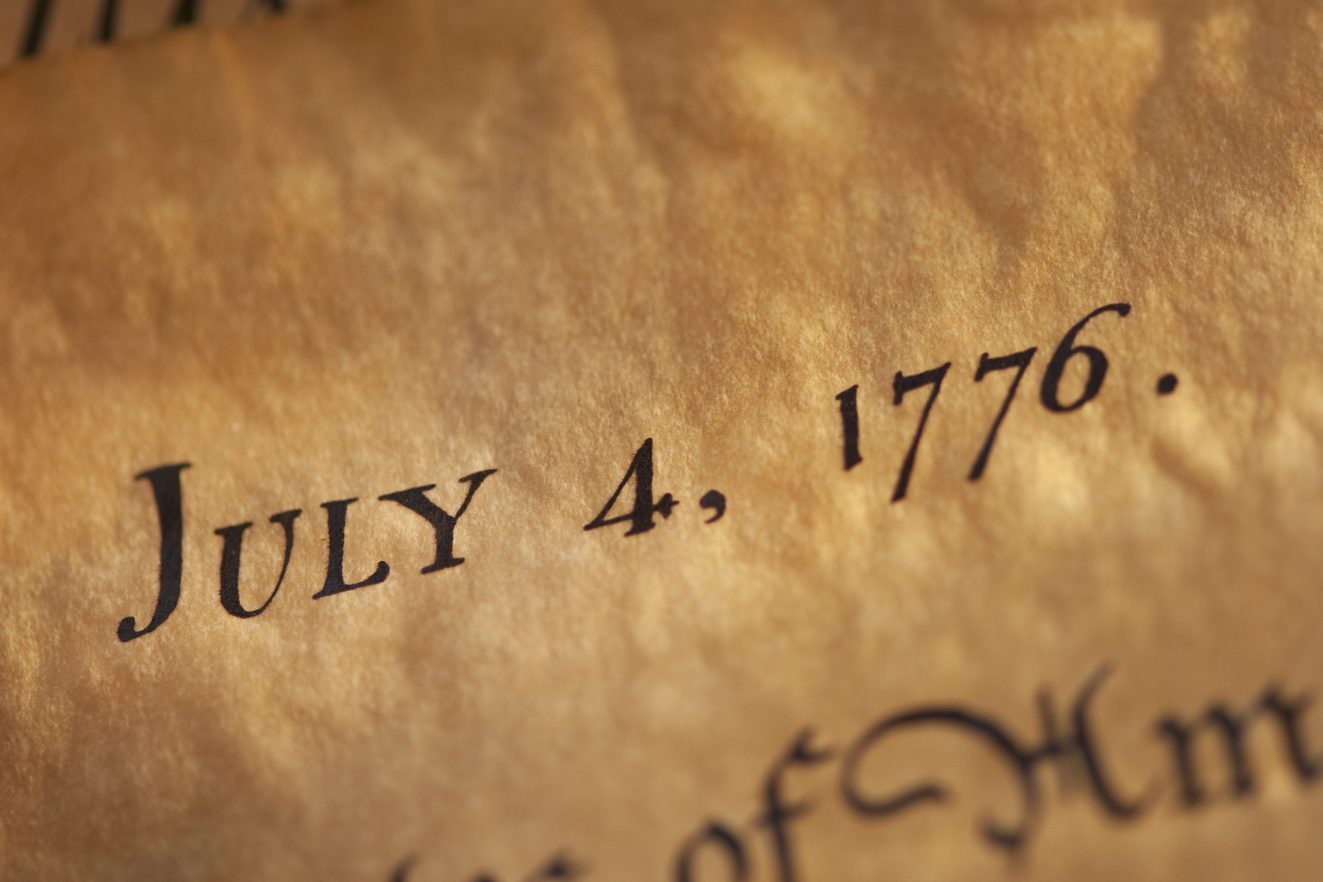 JULY 4, 1776.
of Am